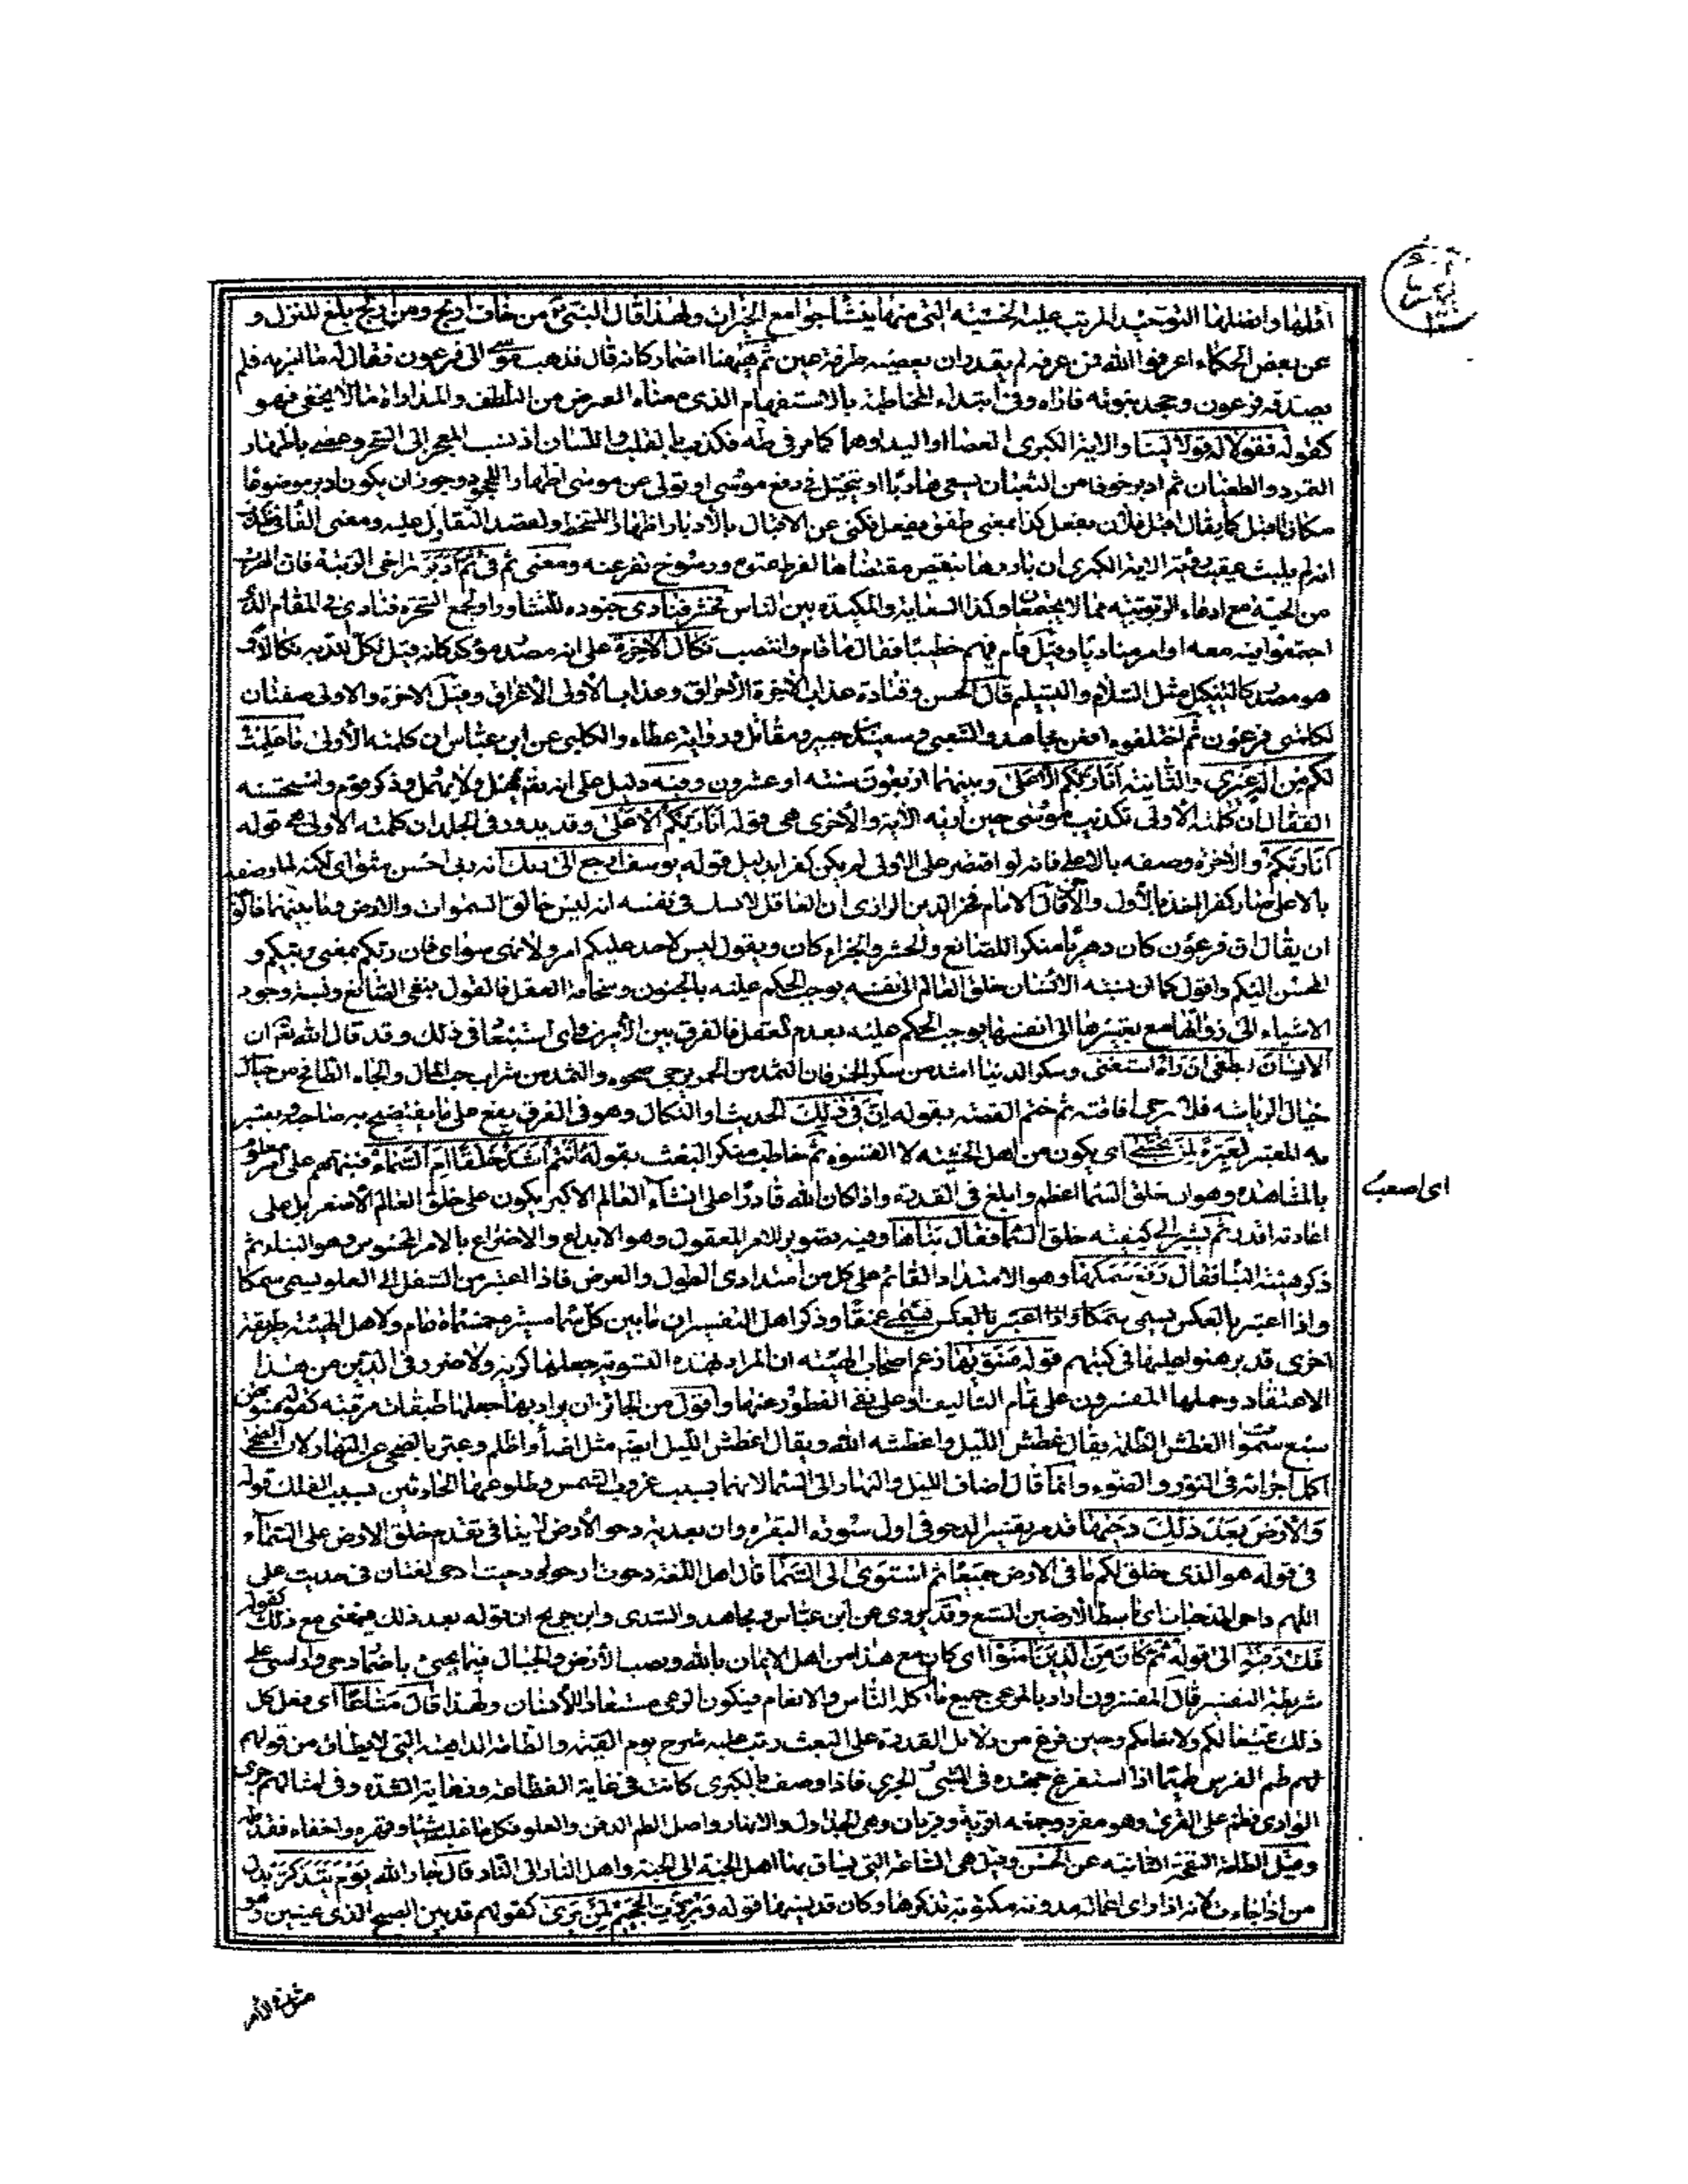 اقلها وافضلها التوحيد المرتب عليه الخشية التى منها ينشأ جوامع الخيرات ولهذا قال النبى من خاف ادلج ومن ادلج بلغ المنزل و
عن بعض الحكماء اعرفوا الله فمن عرفه لم يقدر ان يعصيه طرفة عين ثم ههنا اضمار كانه قال فذهب موسى الى فرعون فقال له ما امر به فلم
يصدقه فرعون وجحد نبوته فاراه وفى ابتداء المخاطبة بالاستفهام الذى معناه العرض من التلطف والمداواة ما لا يخفى فهو
كقوله فقولا له قولا لينا والاية الكبرى العصا او اليد او هما كما مر فى طه فكذب بالقلب واللسان اذ نسب المعجز الى السحر وعصى باظهار
التمرد والطغيان ثم ادبر خوفا من الثعبان يسعى هاربا او يتحيل فى دفع موسى او تولى عن موسى اظهارا للجحود وجوز ان يكون ادبر موضوعا
مكان اقبل كما يقال اقبل فلان يفعل كذا بمعنى طفق يفعل فكنى عن الاقبال بالادبار اظهارا للسخط ولقصد التفاؤل عليه ومعنى الفاء فى فكذب
انه لم يلبث عقيب رؤية الاية الكبرى ان بادرها بنقيض مقتضاها لفرط عتوه ورسوخ تفرعنه ومعنى ثم فى ثم ادبر تراخى الرتبة فان الهرب
من الحية مع ادعاء الربوبية مما لا يجتمعان وكذا السعاية والمكيدة بين الناس فحشر فنادى جنوده للتشاور او لجمع السحرة فنادى فى المقام الذى
اجتمعوا فيه معه او امر مناديا وقيل قام فيهم خطيبا فقال ما قام وانتصب نكال الآخرة على انه مصدر مؤكد كانه قيل نكل الله به نكالا
هو مصدر كالتنكيل مثل السلام والتسليم قال الحسن وقتادة عذاب الآخرة الاحراق وعذاب الاولى الاغراق وقيل الاخرة والاولى صفتان
لكلمتى فرعون ثم اختلفوا فعن مجاهد والشعبى وسعيد بن جبير ومقاتل ورواية عطاء والكلبى عن ابن عباس ان كلمته الأولى ما علمت
لكم من اله غيرى والثانية انا ربكم الاعلى وبينهما اربعون سنة او عشرون وفيه دليل على انه تعالى يمهل ولا يهمل وذكر قوم واستحسنه
القفال ان كلمته الأولى تكذيب موسى حين اريه الآية والأخرى هى قوله انا ربكم الاعلى وقد يدور فى الخلد ان كلمته الأولى هى قوله
انا ربكم والآخرة وصفه بالاعلى فانه لو اقتصر على الاولى لم يكن كفرا بدليل قوله يوسف ارجع الى ربك انه ربى احسن مثواى لكنه لما وصفه
بالاعلى صار كفرا فاخذ بالأول والآخر قال الامام فخر الدين الرازى ان العاقل لا يشك فى نفسه انه ليس خالق السموات والارض وما بينهما فالوجه
ان يقال ان فرعون كان دهريا منكرا للصانع والحشر والجزاء كان ويقول ليس لاحد عليكم امر ولا نهى سواى فان ربكم بمعنى مربيكم و
المحسن اليكم واقول كما ان نسبة الانسان خلق العالم الى نفسه يوجب الحكم عليه بالجنون وسخافة العقل فالقول بنفى الصانع ونسبة وجود
الاشياء الى ذواتها مع تغيرها الى انفسها يوجب الحكم عليه بعدم العقل فما الفرق بين الأمرين واى استبعاد فى ذلك وقد قال الله تعالى ان
الانسان ليطغى ان رآه استغنى وسكر الدنيا اشد من سكر الخمر فان الثمل من الخمر يرجى صحوه والثمل من شراب حب المال والجاه الطافح من
خيال الرياسة فلا يرجى افاقته ثم ختم القصة بقوله ان فى ذلك الحديث او النكال وهو فى الغرق يقع على ما يفتضح به صاحبه ويعتبر
به المعتبر لعبرة لمن يخشى اى يكون من اهل الخشية لا القسوة ثم خاطب منكر البعث بقوله أانتم اشد خلقا ام السماء فنبههم على امر معلوم
اى اصعب
بالمشاهدة وهو ان خلق السماء اعظم وابلغ فى القدرة واذا كان الله قادرا على انشاء العالم الاكبر يكون على خلق العالم الأصغر بل على
اعادته اقدر ثم يشير الى كيفية خلق السماء فقال بناها وفيه تصوير للامر المعقول وهو الابداع والاختراع بالامر المحسوس وهو البناء ثم
ذكر هيئة البناء فقال رفع سمكها وهو الامتداد القائم على كل من امتدادى الطول والعرض فاذا اعتبر من السفل الى العلو يسمى سمكا
واذا اعتبر بالعكس يسمى سمكا واذا اعتبر بالعكس فيسمى عمقا وذكر اهل التفسير ان ما بين كل سماء مسيرة خمسمأة عام ولاهل الهيئة طريقة
اخرى قد برهنوا عليها فى كتبهم قوله فسويها زعم اصحاب الهيئة ان المراد بهذه التسوية جعلها كرية ولا ضرر فى الدين من هذا
الاعتقاد وحملها المفسرون على تمام التأليف او على نفى الفطور عنها واقول من الجائز ان يراد بها جعلها طبقات مرتبة كقوله فسويهن
سبع سموات الغطش الظلمة يقال غطش الليل واغطشه الله ويقال اغطش الليل ايضا مثل اضاء واظلم وعبر بالضحى عن النهار لان الضحى
اكمل اجزائه فى النور والضوء وانما قال اضاف الليل والنهار الى السماء لانهما بسبب غروب الشمس وطلوعها الحادثين بسبب الفلك قوله
والارض بعد ذلك دحيها قد مر تفسير الدحو فى اول سورة البقرة وان بعدية دحو الأرض لا ينافى تقدم خلق الارض على السماء
فى قوله هو الذى خلق لكم ما فى الارض جميعا ثم استوى الى السماء قال اهل اللغة دحوت ادحو ودحيت ادحى لغتان فى حديث على
اللهم داحى المدحيات اى باسط الارضين السبع وقد يروى عن ابن عباس ومجاهد والسدى وابن جريج ان قوله بعد ذلك بمعنى مع ذلك كقوله
فك رقبة الى قوله ثم كان من الذين آمنوا اى كان مع هذا من اهل الايمان بالله ونصب الأرض والجبال فيما يجىء باضمار دحى وارسى على
شريطة التفسير قال المفسرون اراد بالمرعى جميع ما يأكله الناس والانعام فيكون الرعى مستعارا للانسان ولهذا قال متاعا اى فعل كل
ذلك تمتيعا لكم ولانعامكم وحين فرغ من دلائل القدرة على البعث رتب عليه شرح يوم القيمة والطامة الداهية التى لا يطاق من قولهم
لهم طم الفرس طميما اذا استفرغ جهده فى الشىء الجرى فاذا وصف بالكبرى كانت فى غاية الفظاعة ونهاية الشدة وفى امثالهم جرى
الوادى فطم على القرى وهو مفرد وجمعه اقرية وقريان وهى الجداول والانهار واصل الطم الدفن والعلو فكل ما غلب شيئا وقهره واخفاه فقد طمه
وقيل الطامة النفخة الثانية عن الحسن وقيل هى الساعة التى يساق بها اهل الجنة الى الجنة واهل النار الى النار قال جار الله يوم يتذكر بدل
من اذا جاءت لانه اذا رأى اعماله مدونة مكتوبة تذكرها وكان قد نسيها قوله وبرزت الجحيم لمن يرى كقولهم قد بين الصبح لذى عينين وهو